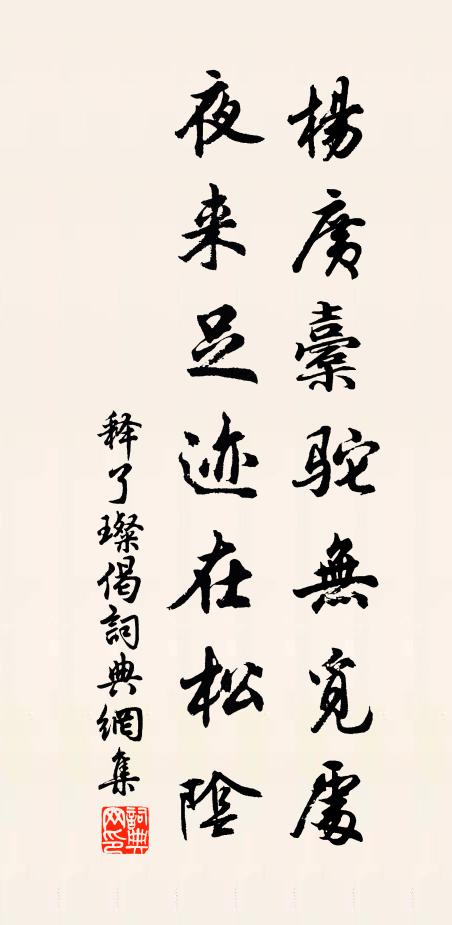 楊廣橐駝無覓處
夜来足迹在松陰
释了璨偈詞典網集
詞典網印